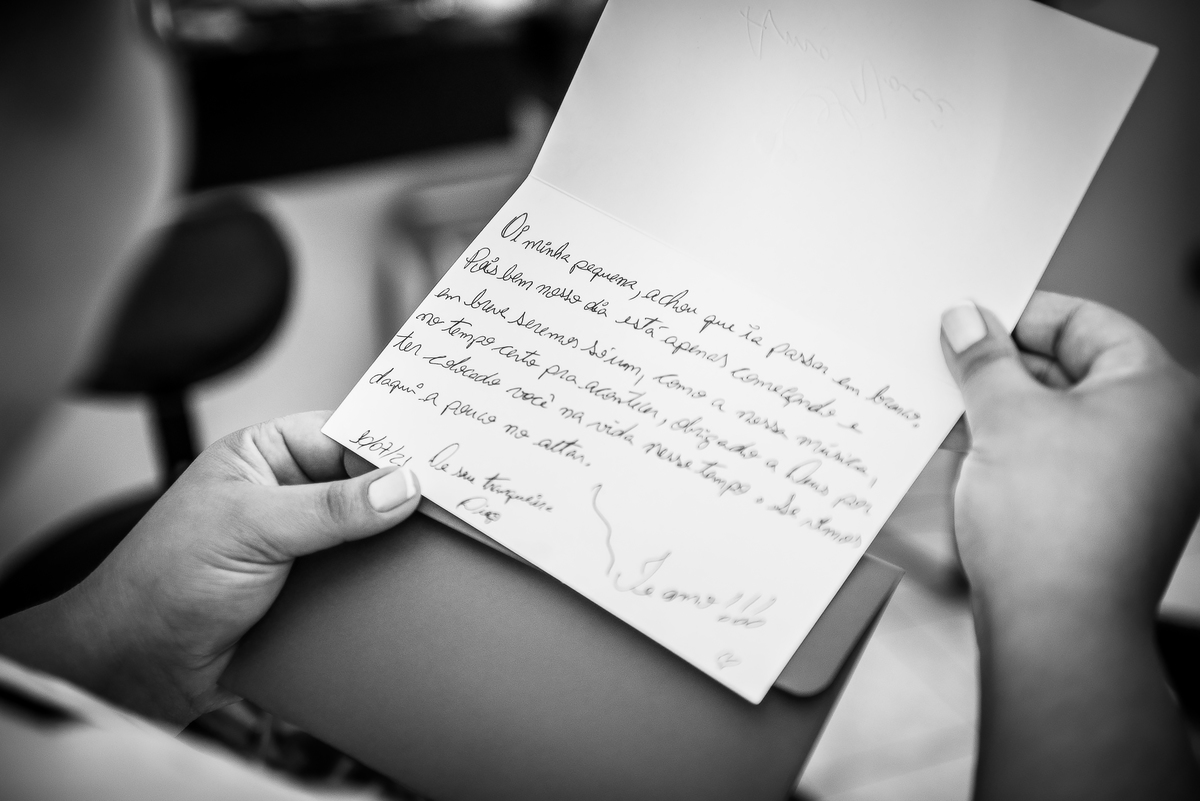 Oi minha pequena, achou que ia passar em branco.
Pois bem nosso dia está apenas começando e
em breve seremos só um, como a nossa música,
no tempo certo pra acontecer, obrigado a Deus por
ter colocado você na vida nesse tempo. Se vemos
daqui a pouco no altar.
30/07/21 De seu
Te amo!!!